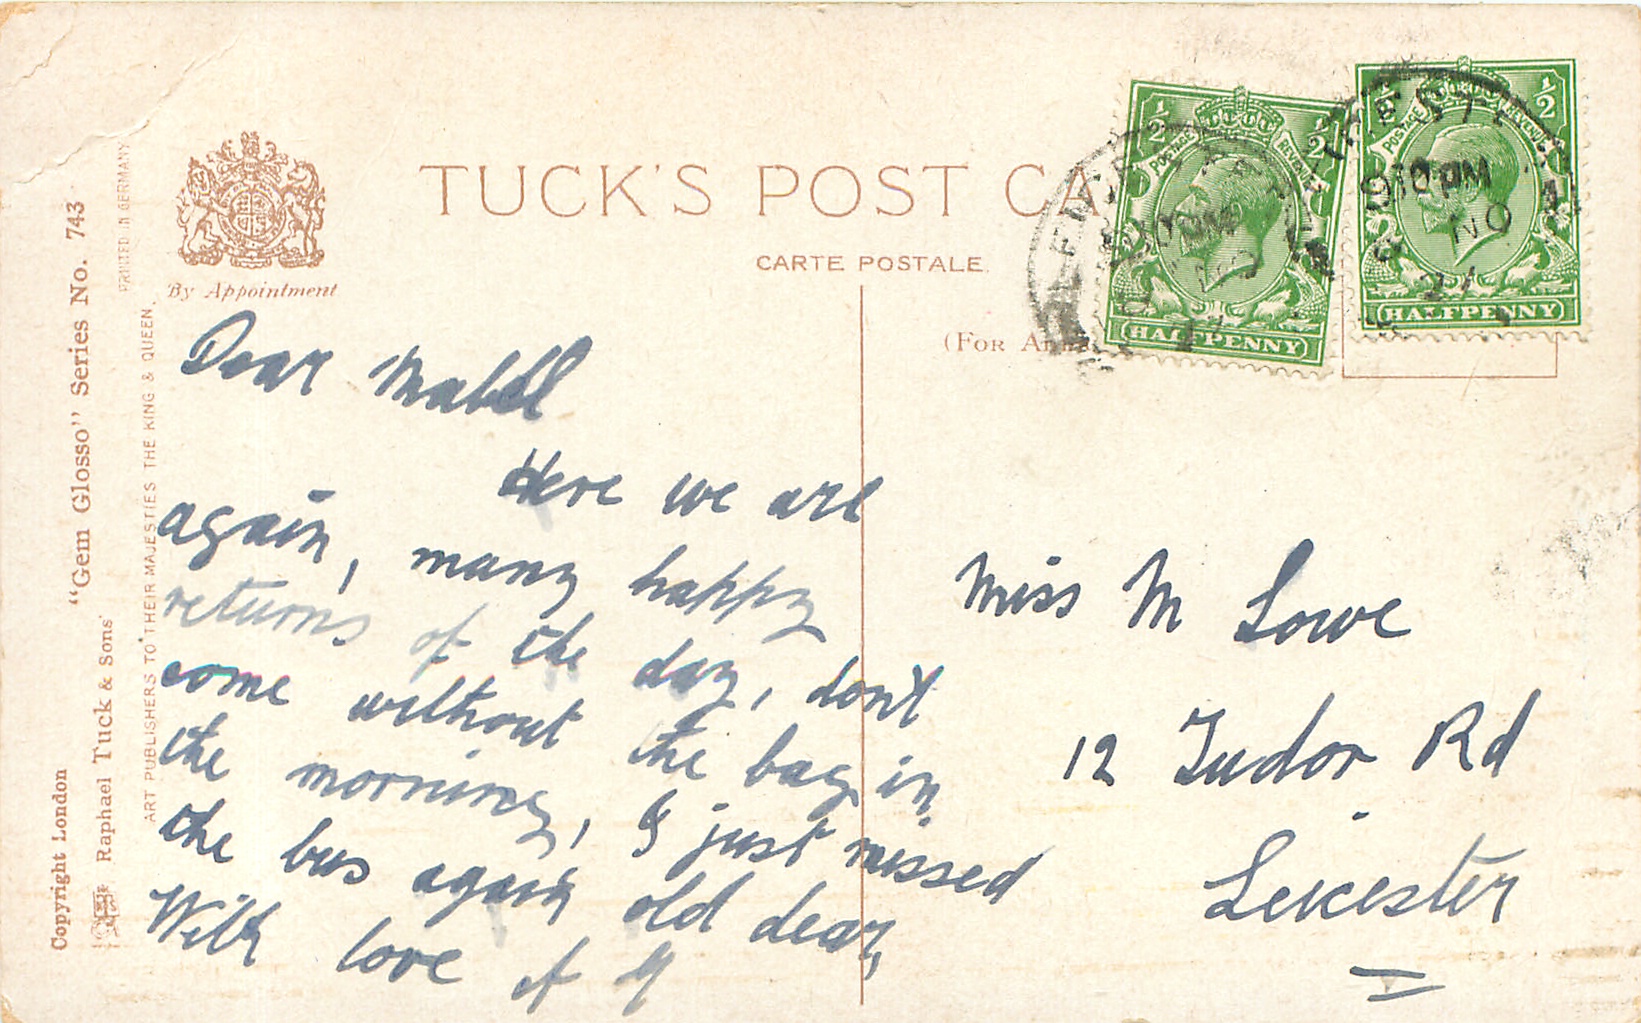 TUCK'S POST CA
CARTE POSTALE
(FOR
By Appointment
PRINTED IN GERMANY
"Gem Glosso" Series No. 743
ART PUBLISHERS TO THEIR MAJESTIES THE KING & QUEEN.
Raphael Tuck & Sons'
Copyright London
½ ½
POSTAGE REVENUE
HALFPENNY
½ ½
POSTAGE REVENUE
HALFPENNY
LEICESTER
10 PM
NO
21
Dear Mabel
Here we are
again, many happy
returns of the day, don't
come without the bag in
the morning, I just missed
the bus again old dear,
With love
Miss M Lowe
12 Tudor Rd
Leicester